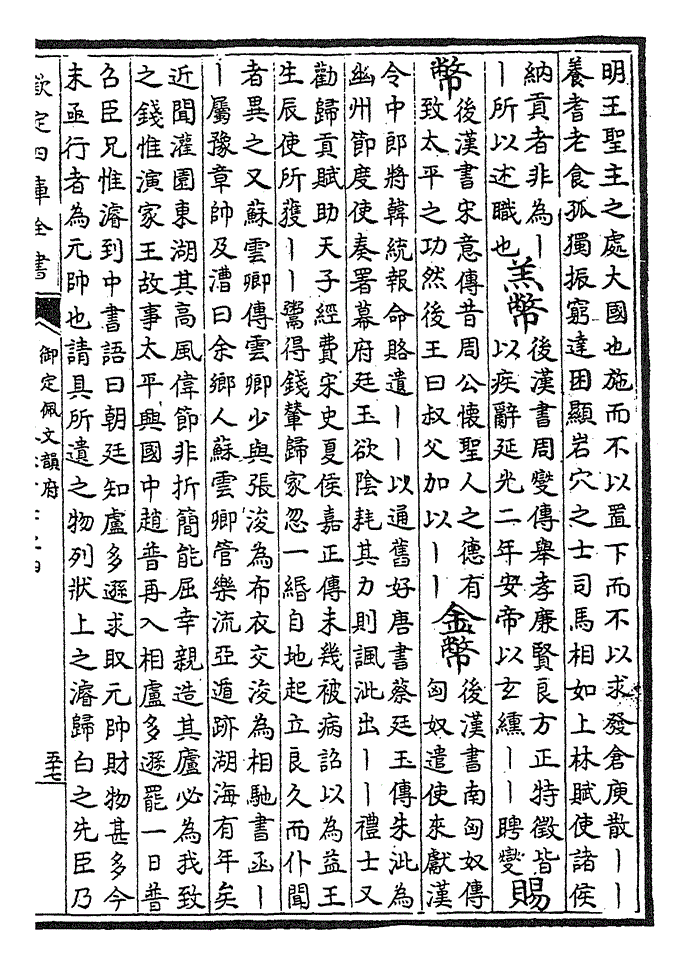 明王聖主之處大國也施而不以置下而不以求發倉庾散丨丨
養耆老食孤獨振窮達困顯岩穴之士司馬相如上林賦使諸侯
納貢者非為丨
丨所以述職也
羔幣
後漢書周燮傳舉孝廉賢良方正特徵皆
以疾辭延光二年安帝以玄纁丨丨聘燮
賜
幣
後漢書宋意傳昔周公懷聖人之德有
致太平之功然後王曰叔父加以丨丨
金幣
後漢書南匈奴傳
匈奴遣使來獻漢
令中郎將韓統報命賂遺丨丨以通舊好唐書蔡廷玉傳朱泚為
幽州節度使奏署幕府廷玉欲陰耗其力則諷泚出丨丨禮士又
勸歸貢賦助天子經費宋史夏侯嘉正傳未幾被病詔以為益王
生辰使所獲丨丨鬻得錢輦歸家忽一緡自地起立良久而仆聞
者異之又蘇雲卿傳雲卿少與張浚為布衣交浚為相馳書函丨
丨屬豫章帥及漕曰余鄉人蘇雲卿管樂流亞遁跡湖海有年矣
近聞灌園東湖其高風偉節非折簡能屈幸親造其廬必為我致
之錢惟演家王故事太平興國中趙普再入相盧多遜罷一日普
召臣兄惟濬到中書語曰朝廷知盧多遜求取元帥財物甚多今
未亟行者為元帥也請具所遺之物列狀上之濬歸白之先臣乃
欽定四庫全書
御定佩文韻府
五十七